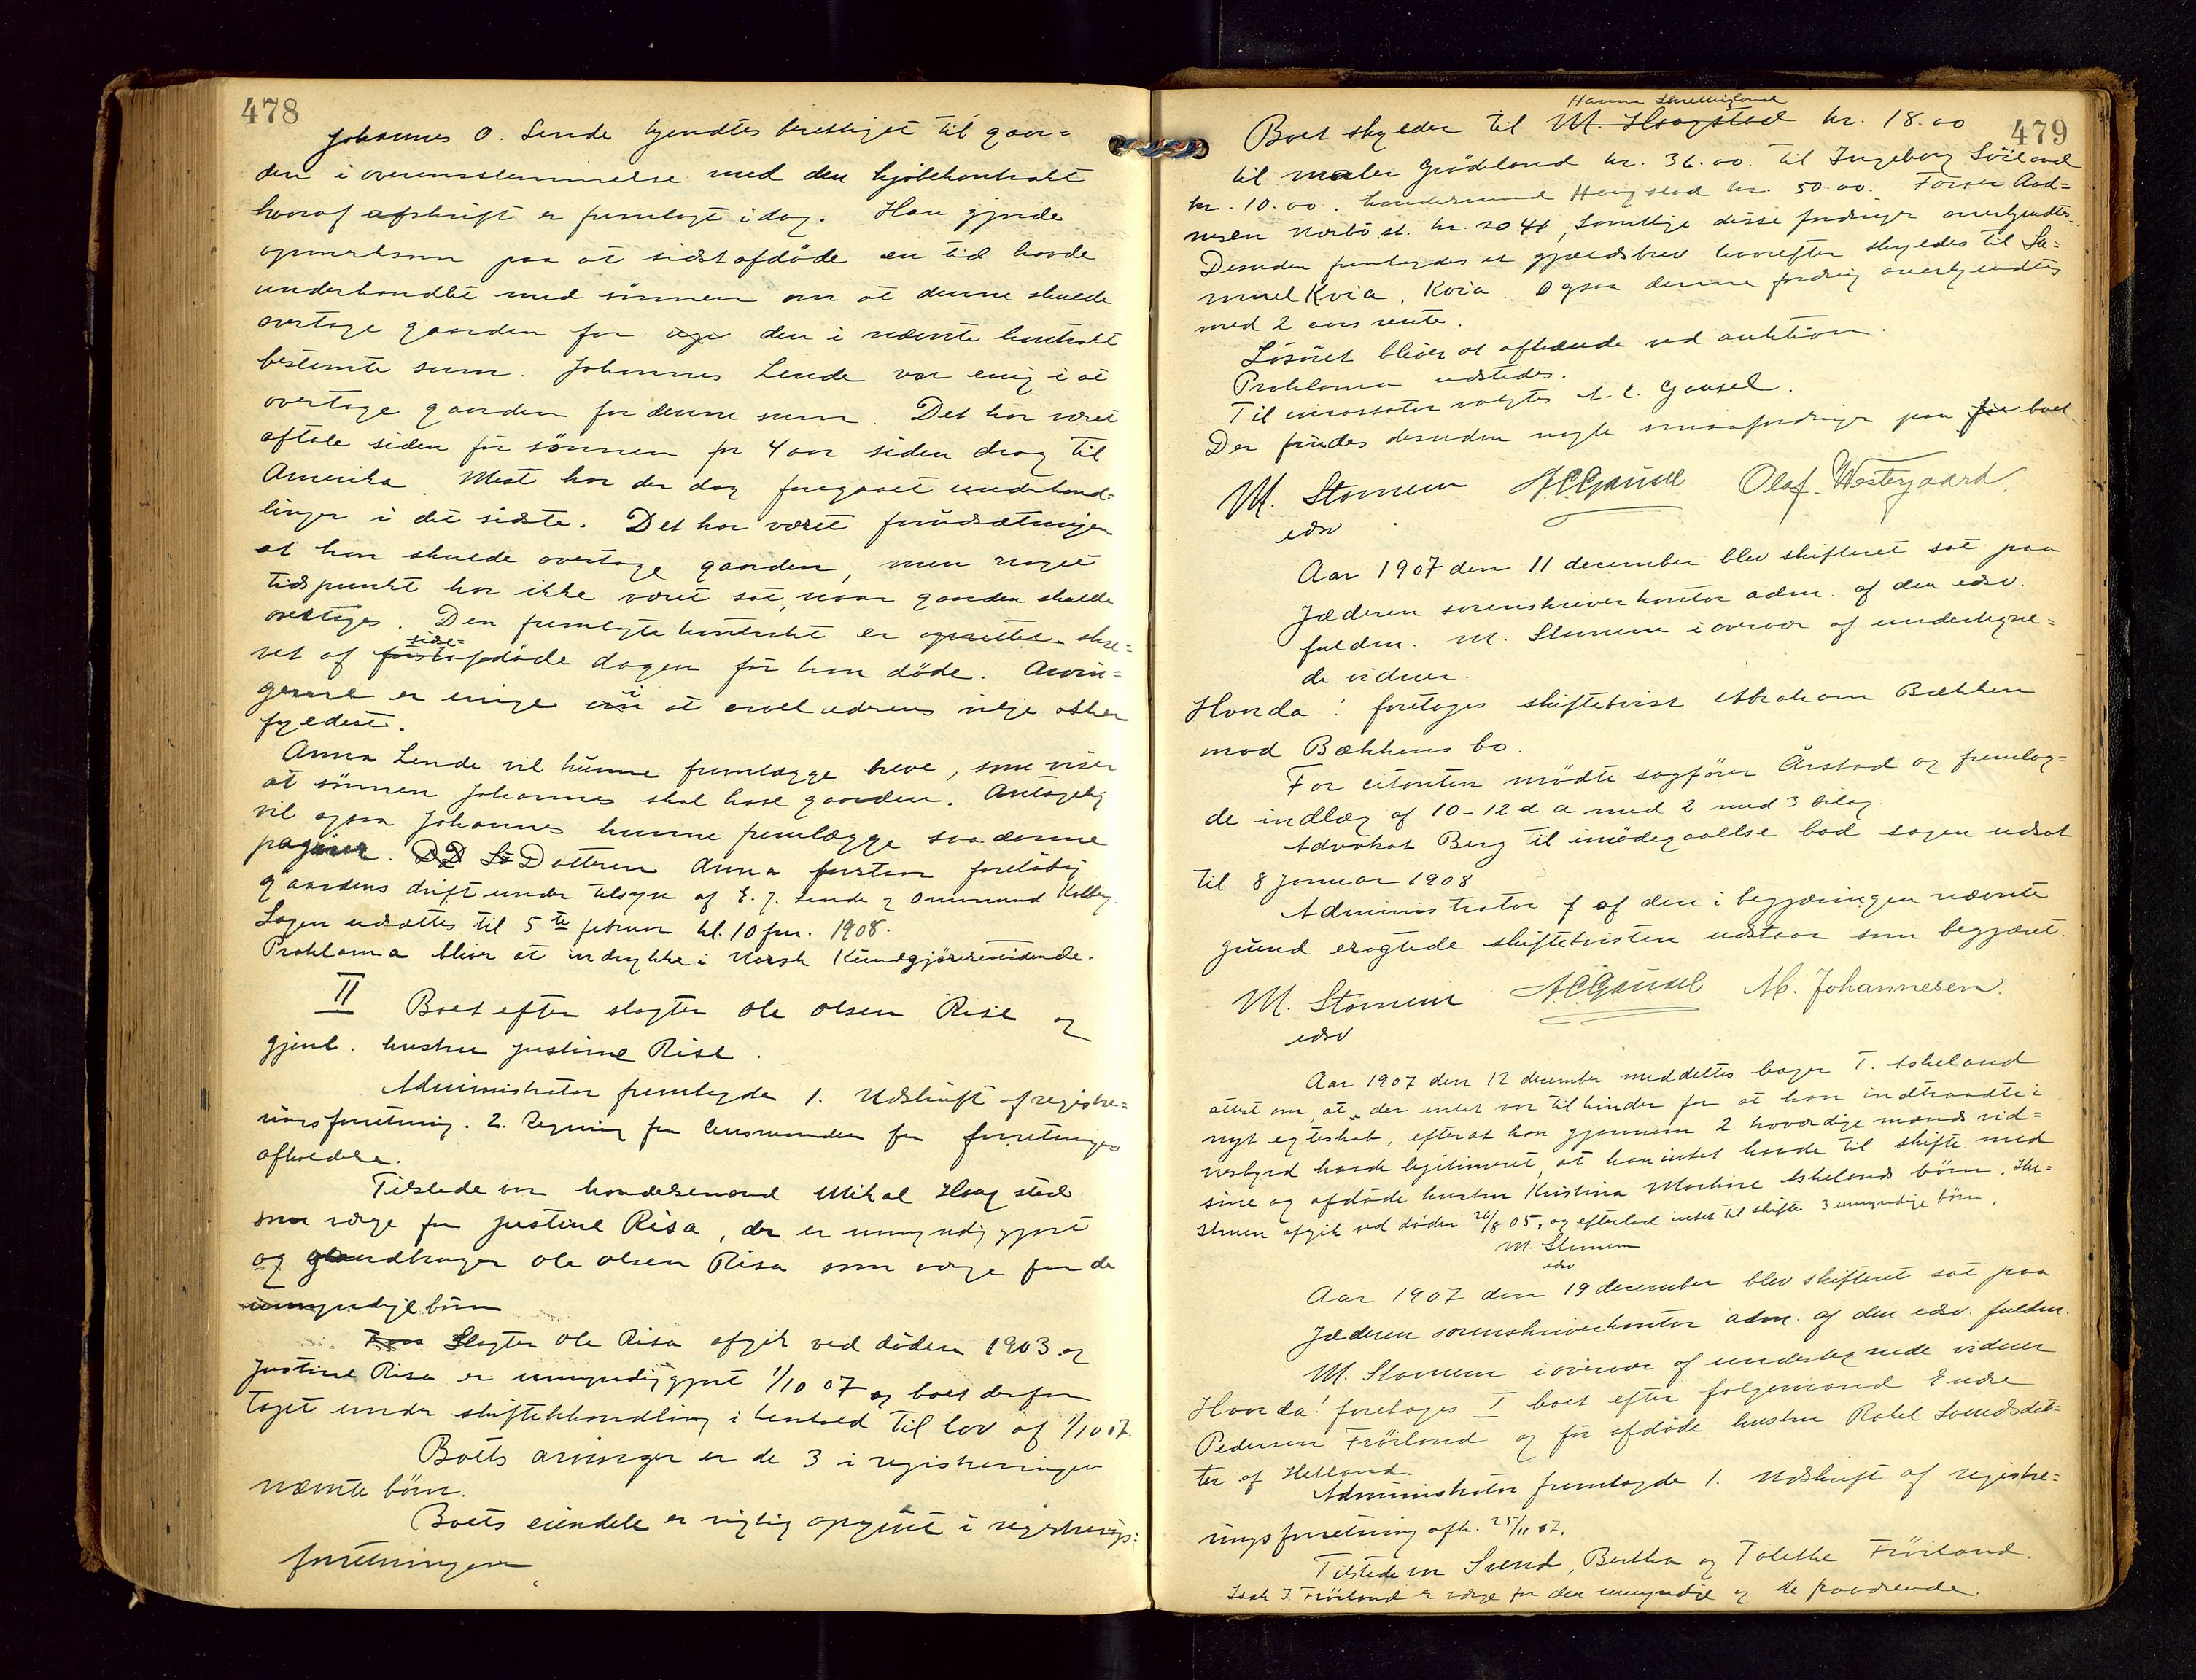 478
Johannes O. Lende kjendtes berettiget til gaar-
den i overensstemmelse med den kjöbekontrakt
hvoraf afskrift er fremlagt idag. Han gjorde
opmerksom paa at sidstafdöde en tid havde
underhandlet med sönnen om at denne skulde
overtage gaarden for den i nævnte kontrakt
bestemte sum. Johannes Lende var enig i at
overtage gaarden for denne sum. Det har været
aftale siden för sönnen for 4 aar siden drog til
Amerika. Mest har der dog foregaaet underhand-
linger i det sidste. Det har været forudsætningen
at han skulde overtage gaarden, men noget
tidspunkt har ikke været sat, naar gaarden skulde
overtages. Den fremlagte kontrakt er opsat skre-
vet af sidstafdöde dagen för han döde. Arvin-
gerne er enige i at arveladerens vilje sker
fyldest.
Anna Lende vil kunne fremlægge breve, som viser
at sönnen Johannes skal have gaarden. Antagelig
vil ogsaa Johannes kunne fremlægge saadanne
papirer. Datteren Anna forstaar forelöbig
gaardens drift under tilsyn af E. J. Lende og Ommund Kolberg.
Sagen udsættes til 5te februar kl. 10 fm. 1908.
Proklama bliver at indrykke i Norsk Kundgjörelsestidende.
II Boet efter slagter Ole Olsen Rise og
gjenl. hustru Justine Rise.
Administrator fremlagde 1. Udskrift af registre-
ringsforretning. 2. Regning fra lensmanden for forretningens
afholdelse.
Tilstede var handelsmand Mikal Haagstad
som værge for Justine Risa, der er umyndiggjort
og gaardbruger Ole Olsen Risa som værge for de
umyndige börn
Slagter Ole Risa afgik ved döden 1903 og
Justine Risa er umyndiggjort 1/10 07 og boet derfor
taget under skiftebehandling i henhold til lov af 1/10 07.
Boets arvinger er de 3 i registreringen
nævnte börn.
Boets eiendele er rigtig opgivet i registrerings-
forretningen.
479
Hanna Skretting
Boet skylder til M. Haagstad kr. 18.00
til maler Grödeland kr. 36.00. til Ingeborg Söiland
kr. 10.00. handelsmand Haugstad kr. 50.00. Aad-
nesen Nærbö st. kr. 20.41, Samtlige disse fordringer anerkjendtes.
Desuden fremlagdes et gjældsbrev hvorefter skyldes til Sa-
muel Kvia, Kvia. Ogsaa denne fordring anerkjendtes
med 2 aars rente.
Lösöret bliver at afhænde ved auktion.
Proklama udstedes.
Til incassator valgtes A. C. Gausel.
Der findes desuden nogle smaafordringer paa boet.
M. Stornem A C Gausel Olaf. Westergaard.
edsv
Aar 1907 den 11 december blev skifteret sat paa
Jæderen sorenskriverkontor adm. af den edsv.
fuldm. M. Stornem i overvær af undertegne-
de vidner.
Hvorda! foretages skiftetvist Abraham Bækken
mod Bækkens bo.
For citanten mödte sagförer Årstad og fremlag-
de indlæg af 10-12 d. a med 2 med 3 bilag.
Advokat Berg til imödegaaelse bad sagen udsat
til 8 januar 1908
Administrator af den i begjæringen nævnte
grund eragtede skiftetvisten udsat som begjæret.
M. Stornem A C Gausel M. Johannesen.
edsv
Aar 1907 den 12 december meddeltes bager T. Askeland
attest om, at der intet var til hinder for at han indtraadte i
nyt egteskab, efterat han gjennem 2 hæderlige mænds vid-
nesbyrd havde legitimeret, at han intet havde til skifte med
sine og afdöde hustru Kristina Martine Askelands börn. Hu-
struen afgik ved döden 26/8 05, og efterlod intet til skifte 3 umyndige börn.
M. Stornem
edsv
Aar 1907 den 19 december blev skifteret sat paa
Jæderen sorenskriverkontor adm. af den edsv. fuldm.
M. Stornem i overvær af undertegnede vidner
Hvorda! foretages I boet efter folgemand Endre
Pedersen Fröiland og för afdöde hustru Rakel Svendsdat-
ter af Helland.
Administrator fremlagde 1. Udskrift af registre-
ringsforretning afh. 25/11 07.
Tilstede var Svend, Bertha og Tolethe Fröiland.
Isak J. Fröiland er værge for den umyndige og de fraværende.